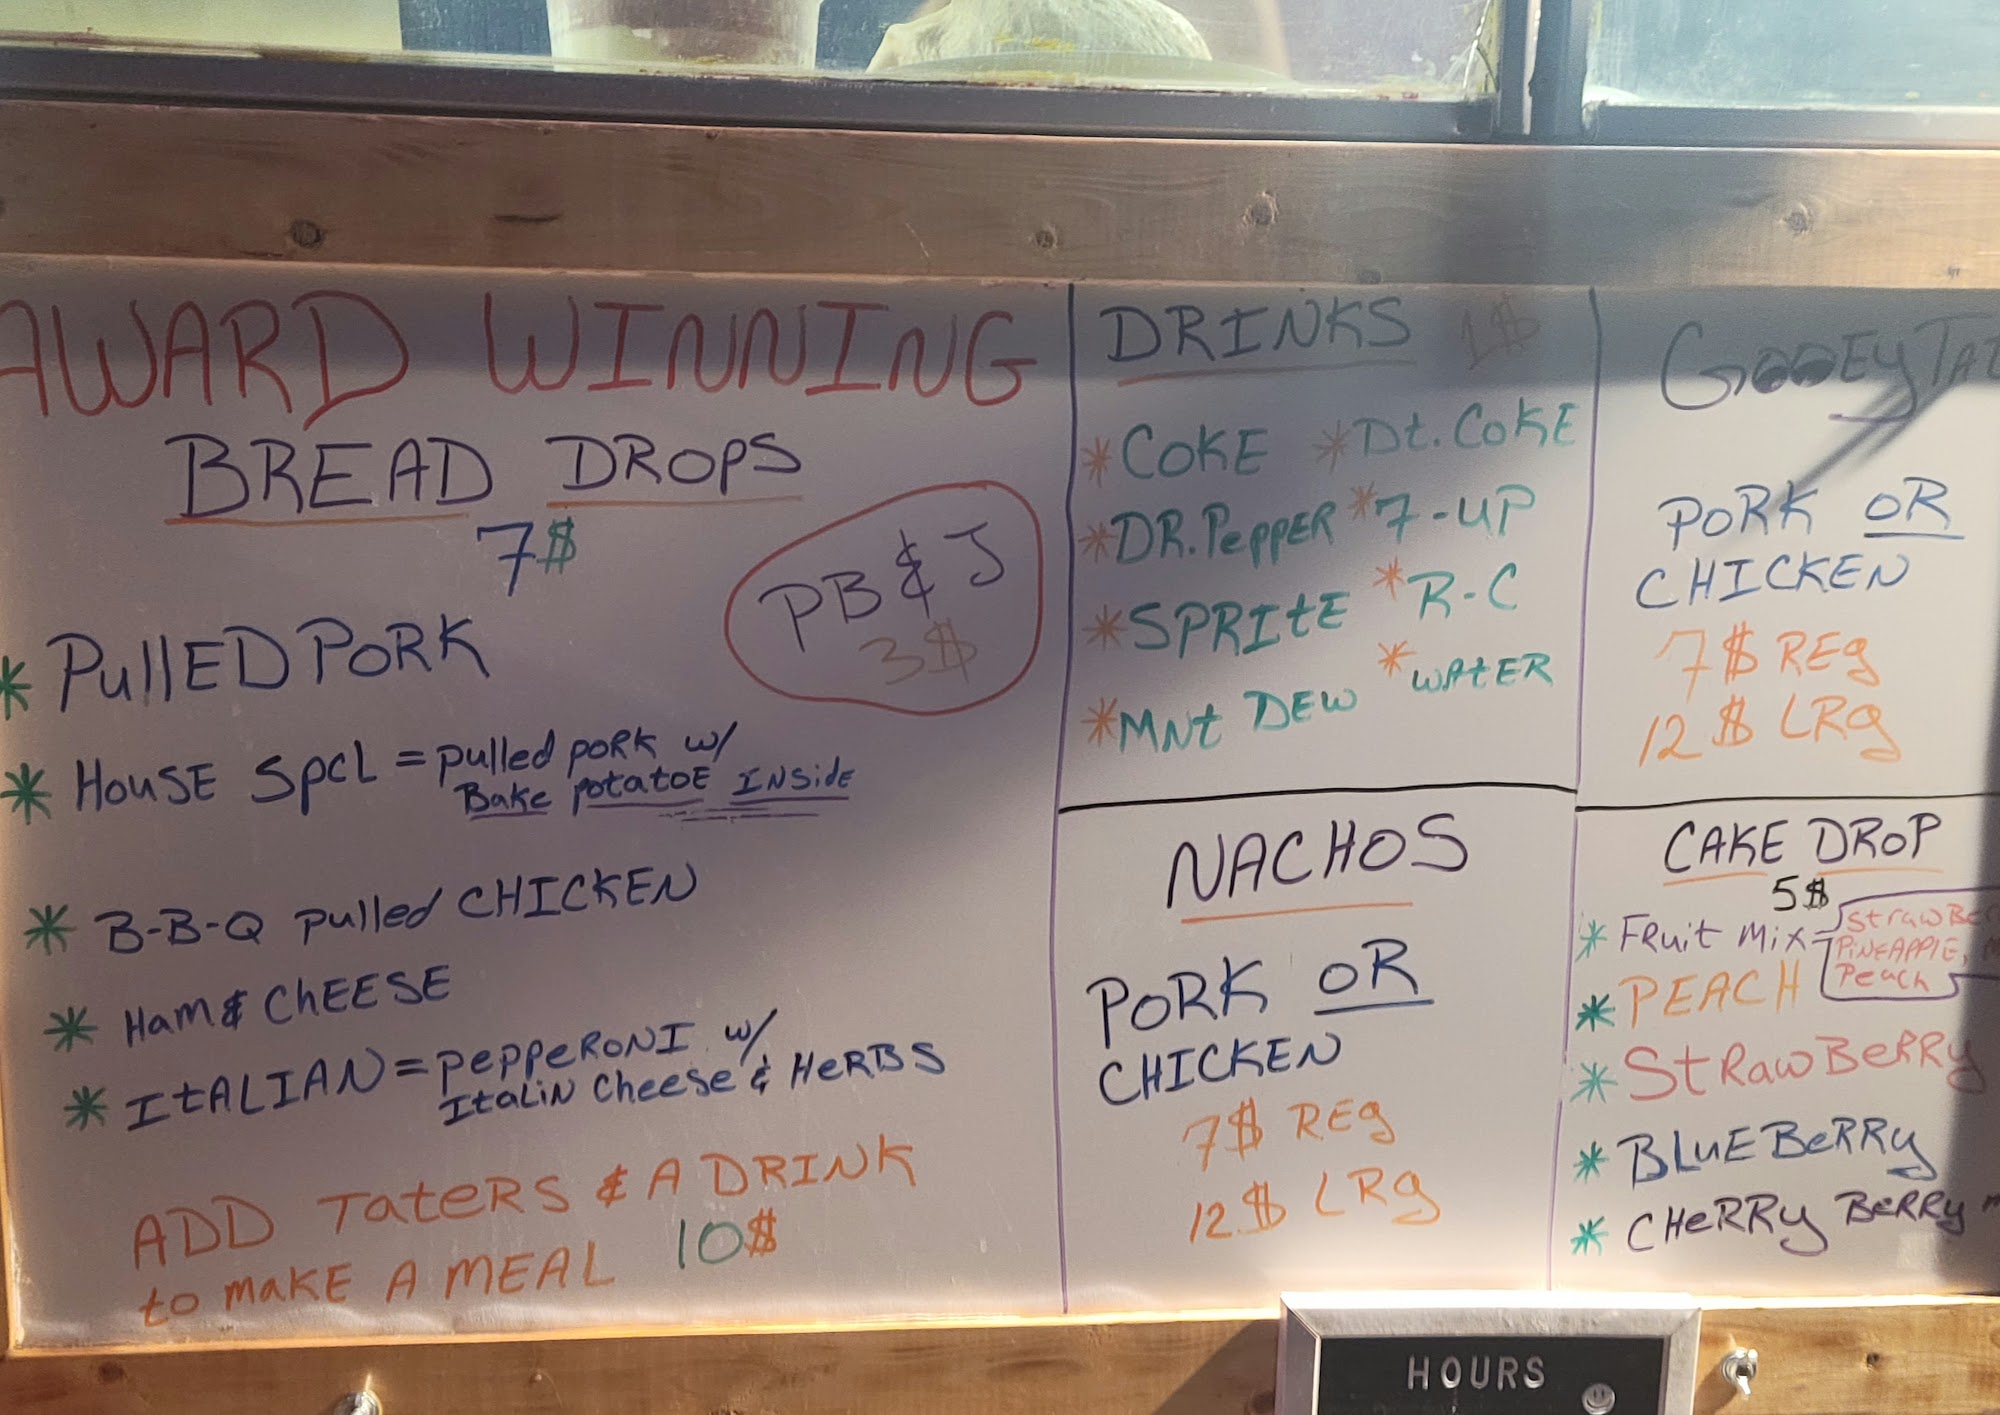 AWARD WINNING
BREAD DROPS
7$
PB & J
3$
* PullED PORK
* HOUSE SPCL = pulled PORK w/
Bake potatoE INSide
* B-B-Q pulled CHICKEN
* Ham & ChEESE
* ItALIAN = PePPeRONI w/
ItaliN Cheese & HeRBS
ADD TateRS & A DRINK
to mAKE A MEAL 10$
DRINKS 1$
* COKE * Dt. COKE
* DR. PePPER * 7-UP
* SPRItE * R-C
* MNt DEW * WAtER
NACHOS
PORK OR
CHICKEN
7$ REg
12$ LRg
GOOEy
PORK OR
CHICKEN
7$ REg
12$ LRg
CAKE DROP
5$
* FRuit Mix =
PiNEAPPlE,
Peach
* PEACH
* StRawBeRRy
* BLuEBeRRy
* CHeRRy BeRRy
HOURS